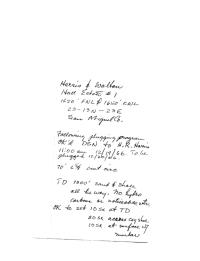 Harris & Walton
Hall Estate #1
1650' FNL & 1650' FNL
23-15N-23E
San Miguel Co.
Following plugging program
OK'd to H.R. Harris
11:00 am 12/19/66. To be
plugged 12/20/66
70' csg
TD 1000' sand & shale
all the way. No hydro
carbons or
OK to set 10sx at TD
20sx across csg shoe
10sx at surface w/
marker